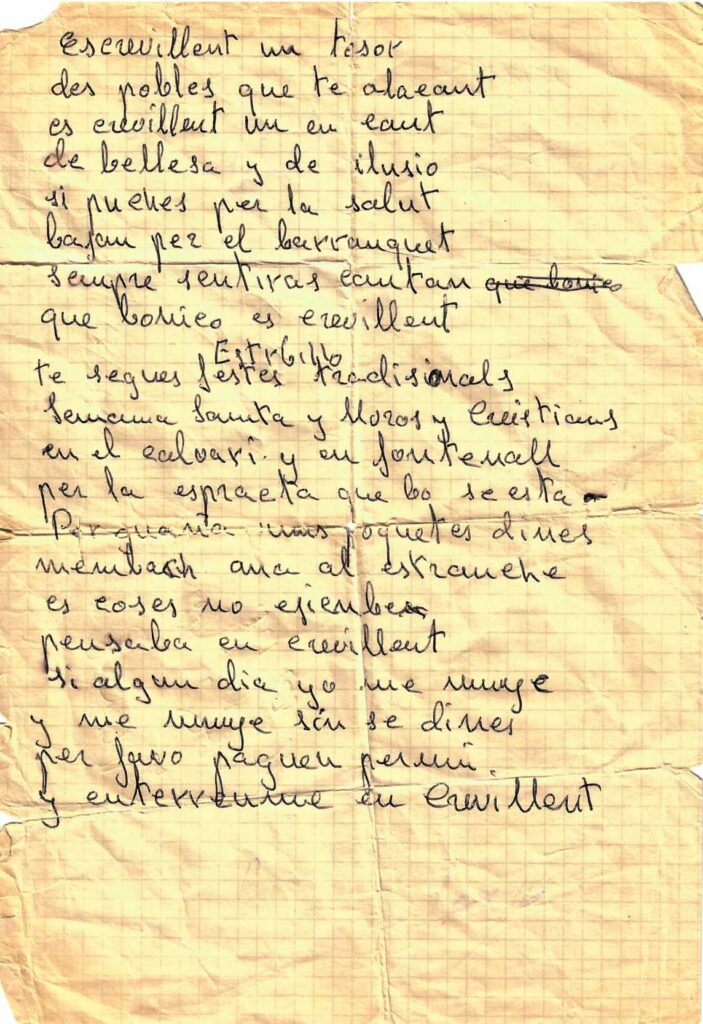 Escrevillent un tesor
des pobles que te alacant
es crevillent un en cant
de bellesa y de ilusio
si puches per la salut
bajan per el barranquet
sempre sentiras cantan que bonico
que bonico es crevillent
Estrbillo
te segues festes tradisionals
Semama Santa y Moros y Cristians
en el calvari y en fontenall
per la espraeta que bo se esta
Per guaña unas poquetes dines
membach ana al estranche
es coses no
pensaba en crevillent
si algun dia yo me muye
y me muye sin se dines
per favo paguen permi
y enterrenme en Crevillent